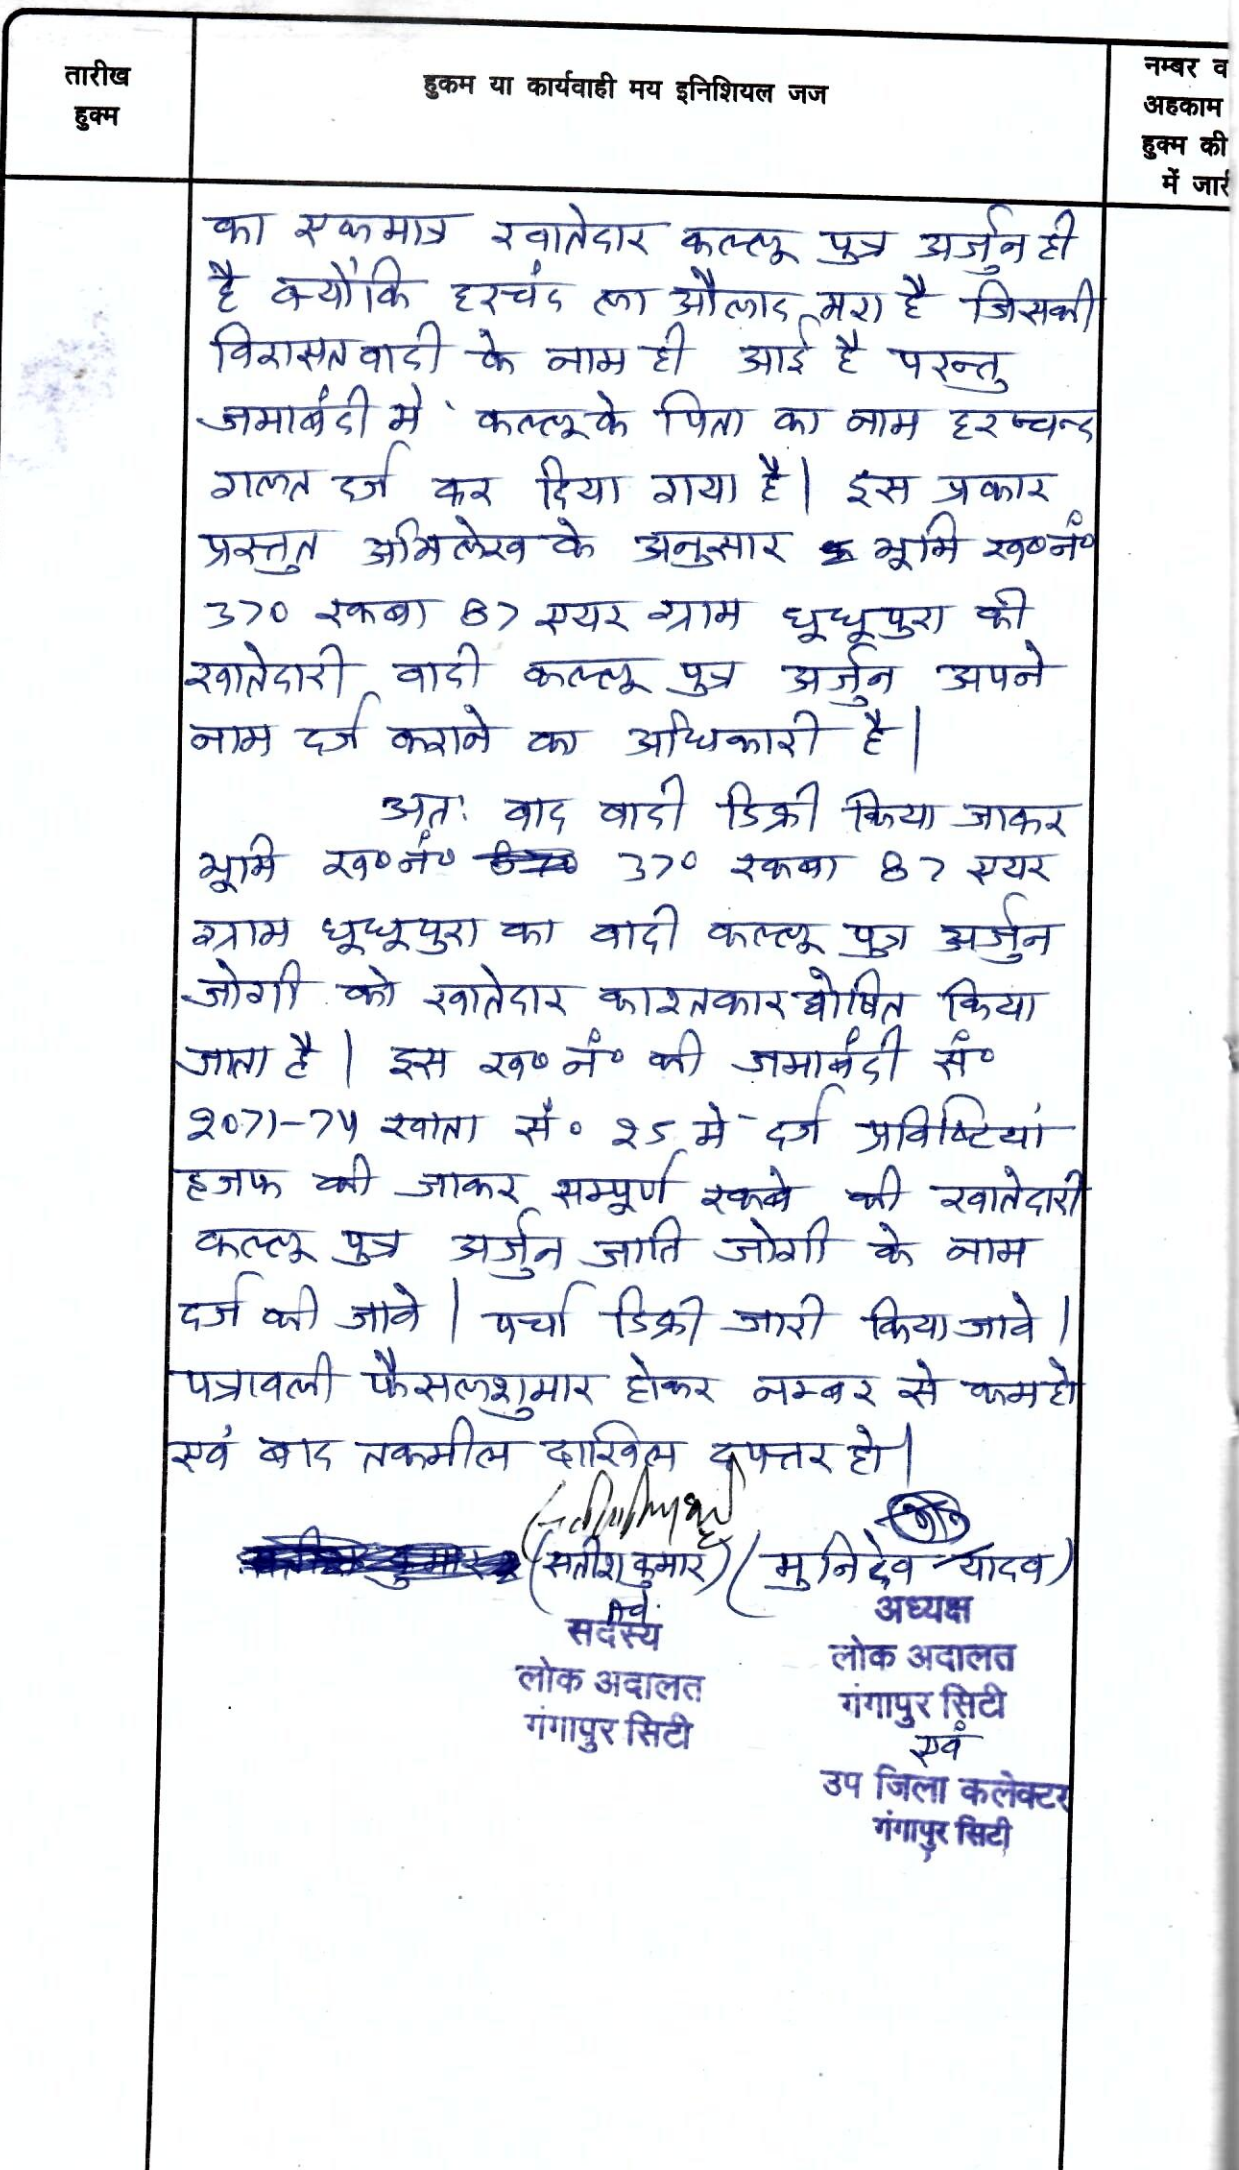 तारीख
हुक्म
हुकम या कार्यवाही मय इनिशियल जज
नम्बर व
अहकाम
हुक्म की
में जार
का एकमात्र खातेदार कल्लू पुत्र अर्जुन ही
है क्योंकि हरचंद ला औलाद मरा है जिसकी
विरासत वादी के नाम ही आई है परन्तु
जमाबंदी में कल्लू के पिता का नाम हरचन्द
गलत दर्ज कर दिया गया है| इस प्रकार
प्रस्तुत अभिलेख के अनुसार भूमि ख०नं०
370 रकबा 87 एयर ग्राम धूधूपुरा की
खातेदारी वादी कल्लू पुत्र अर्जुन अपने
नाम दर्ज कराने का अधिकारी है|
अतः वाद वादी डिक्री किया जाकर
भूमि ख०नं० 370 रकबा 87 एयर
ग्राम धूधूपुरा का वादी कल्लू पुत्र अर्जुन
जोगी को खातेदार काश्तकार घोषित किया
जाता है| इस ख० नं० की जमाबंदी सं०
2071-74 खाता सं० 25 में दर्ज प्रविष्टियां
हजफ की जाकर सम्पूर्ण रकबे की खातेदारी
कल्लू पुत्र अर्जुन जाति जोगी के नाम
दर्ज की जावे| पर्चा डिक्री जारी किया जावे|
पत्रावली फैसलशुमार होकर नम्बर से कम हो
एवं बाद तकमील दाखिल दफ्तर हो|
(सतीश कुमार) (मुनिदेव यादव)
सदस्य
लोक अदालत
गंगापुर सिटी
अध्यक्ष
लोक अदालत
गंगापुर सिटी
एवं
उप जिला कलेक्टर
गंगापुर सिटी